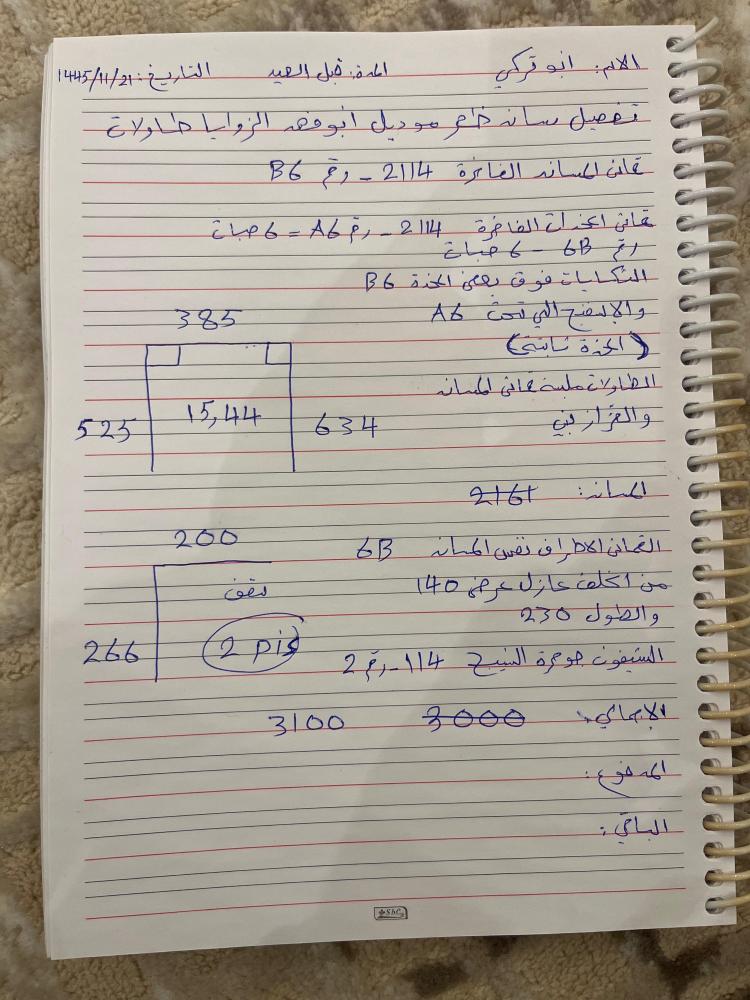 الاسم: ابو تركي المدة: قبل العيد التاريخ: 1445/11/21
تفصيل ساند ظهر موديل ابو فهد الزوايا طاولات
قماش المساند الفاخرة 2114 - رقم B6
قماش الخدات الفاخرة 2114 - رقم A6 = 6 حبات
رقم 6B - 6 حبات
التكايات فوق بعض الخدة B6
والاسفنج التي تحت A6
(الخدة ثابتة)
385
525
15,44
634
الطاولات ملبسة قماش المساند
والقزاز بني
المساند: 2161
القماش الاطراف نفس المساند 6B
200
266
نفق
2 pis
من الخلف عازل عرض 140
والطول 230
الشيفون جوهرة النسيج 114 - رقم 2
الإجمالي: 3000 3100
المدفوع:
الباقي:
Sbc